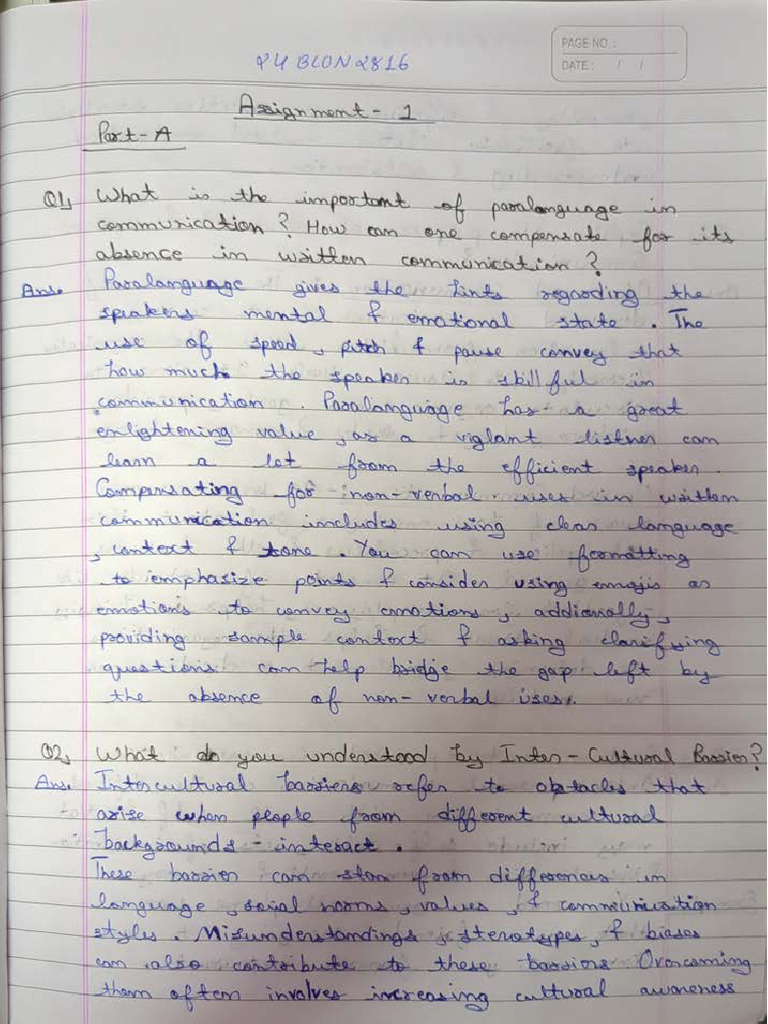 PAGE NO.:
DATE: / /
24 BCON 2816
Assignment - 1
Part - A
Q1, What is the important of paralanguage in
communication ? How can one compensate for its
absence in written communication ?
Ans. Paralanguage gives the hints regarding the
speakers mental & emotional state . The
use of speed , pitch & pause convey that
how much the speaker is skillful in
communication . Paralanguage has a great
enlightening value , as a vigilant listner can
learn a lot from the efficient speaker .
Compensating for non-verbal uses in written
communication includes using clear language
, context & tone . You can use formatting
to emphasize points & consider using emojis as
emotions to convey emotions , addionally ,
providing sample context & asking clarifying
questions can help bridge the gap left by
the absence of non-verbal uses .
Q2, What do you understood by Inter-Cultural Barrier ?
Ans. Intercultural barriers refer to obstacles that
arise when people from different cultural
backgrounds - interact .
These barrier can stan from differences in
language , social norms , values , & communication
styles . Misunderstandings , sterotypes , & bieses
can also contribute to these barriors Overcoming
them often involves increasing cultural awareness